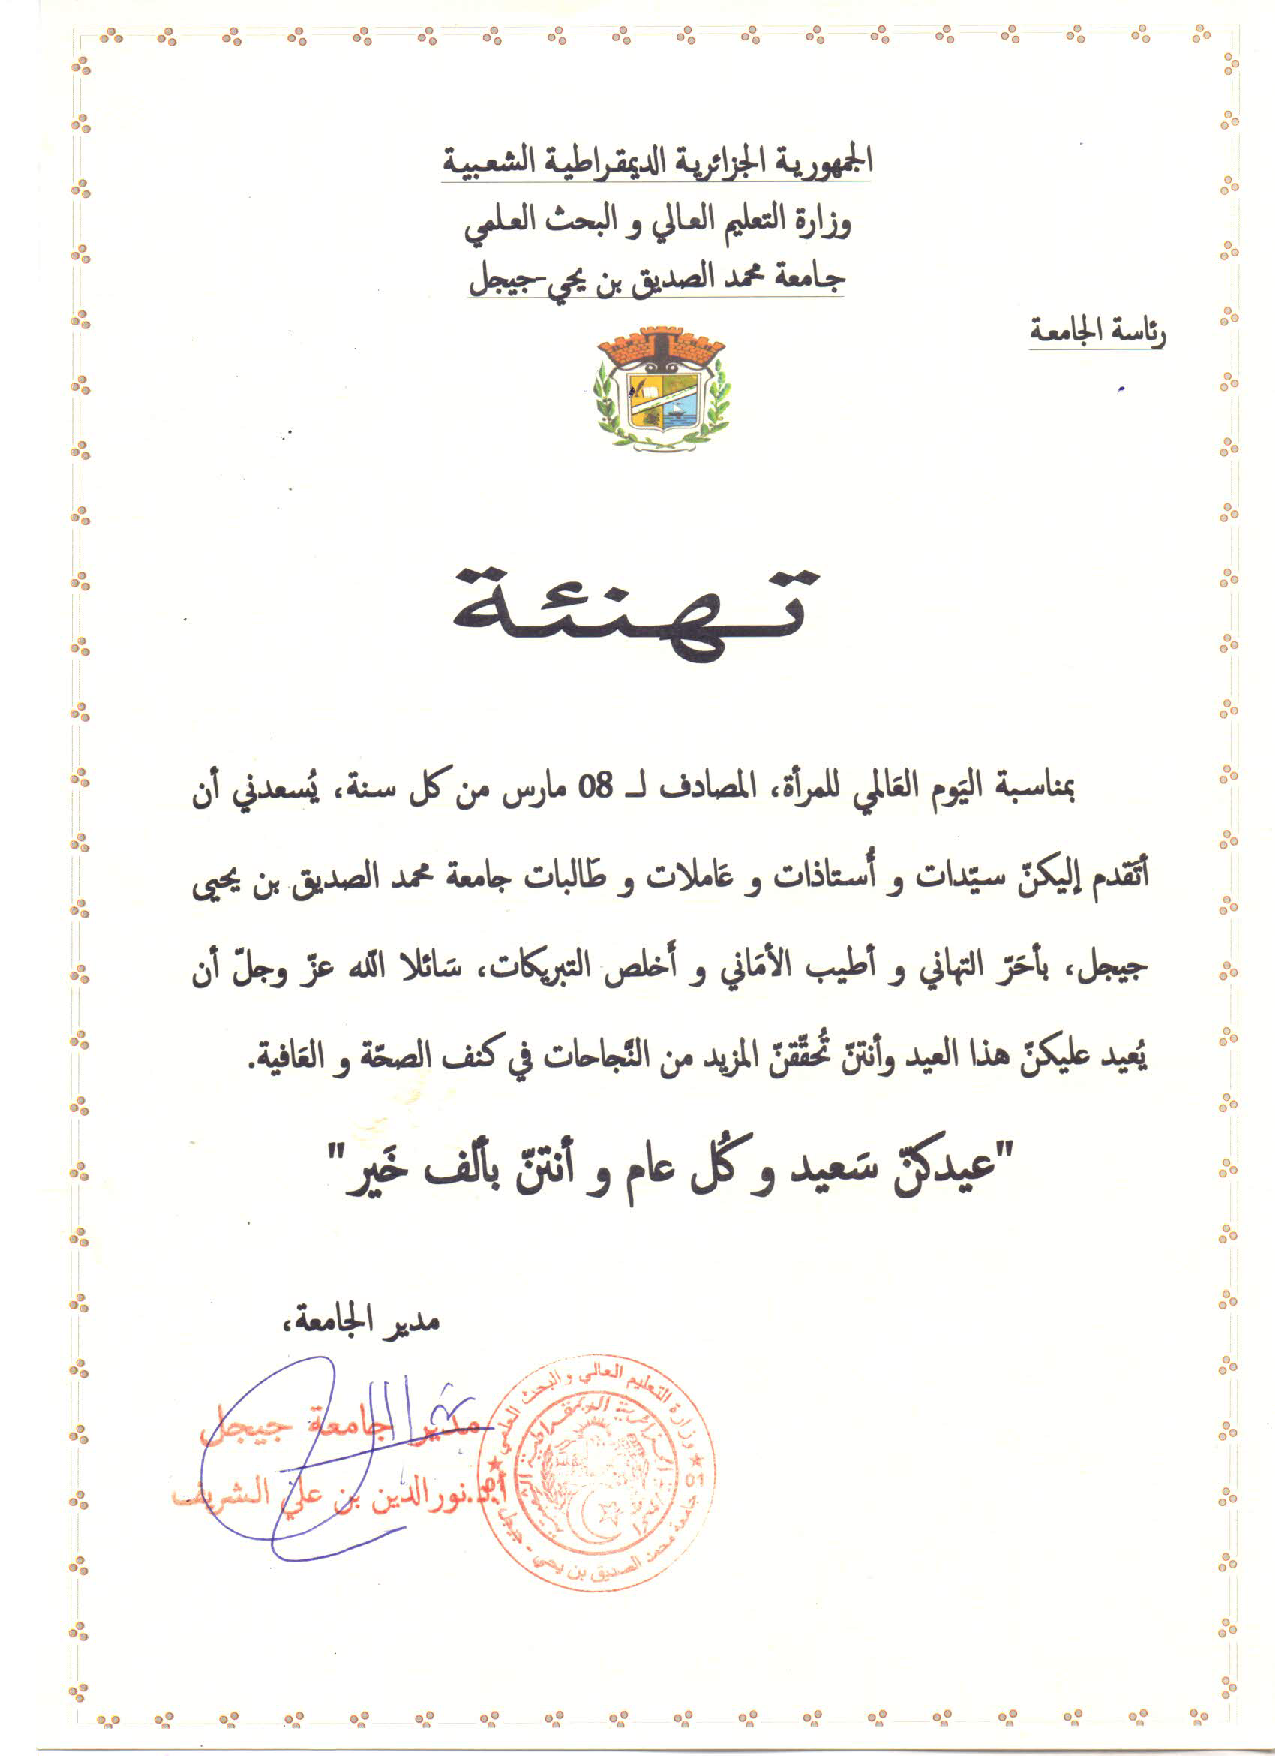 الجمهورية الجزائرية الديمقراطية الشعبية
وزارة التعليم العالي و البحث العلمي
جامعة محمد الصديق بن يحي-جيجل
رئاسة الجامعة
تهنئة
بمناسبة اليَوم العَالمي للمرأة، المصادف لـ 08 مارس من كل سنة، يُسعدني أن
أتَقدم إليكنّ سيّدات و أُستاذات و عَاملات و طَالبات جامعة محمد الصديق بن يحيى
جيجل، بأحَرّ التهاني و أطيب الأمَاني و أَخلص التبريكات، سَائلا الله عزّ وجلّ أن
يُعيد عليكنّ هذا العيد وأنتنّ تُحقّقنّ المزيد من النَّجاحات في كنف الصحّة و العَافية.
"عيدكنّ سَعيد و كُل عام و أنتنّ بألف خَير"
مدير الجامعة،
مدير الجامعة جيجل
أ.د.نور الدين بن علي الشريف
وزارة التعليم العالي و البحث العلمي
الجمهورية الجزائرية الديمقراطية الشعبية
01
جامعة محمد الصديق بن يحي - جيجل